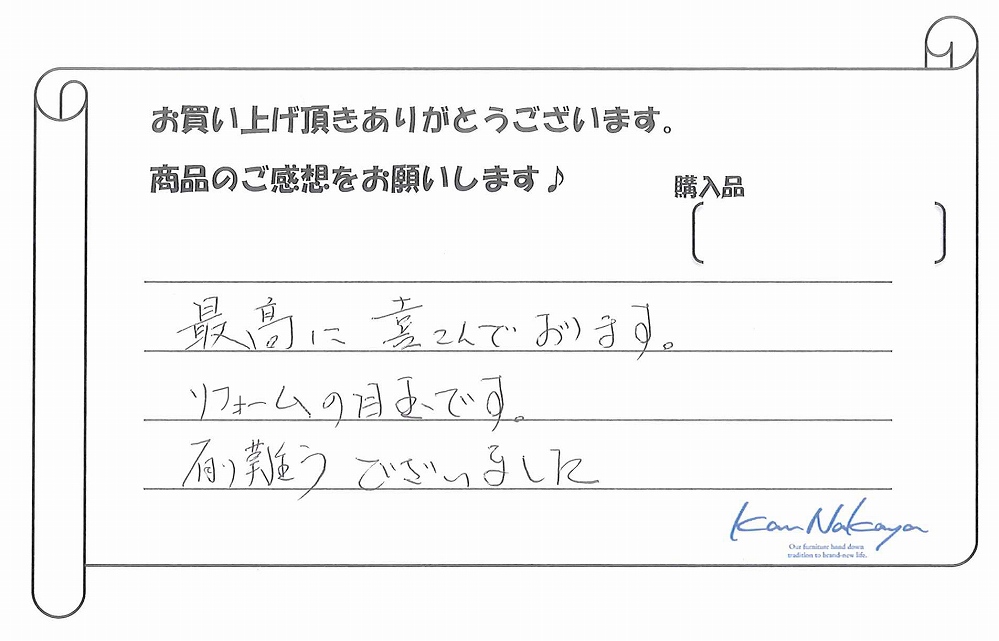 お買い上げ頂きありがとうございます。
商品のご感想をお願いします♪
購入品
最高に喜こんでおります。
リフォームの目玉です。
有り難うございました
Kan Nakaya
Our furniture hand down
tradition to brand-new life.